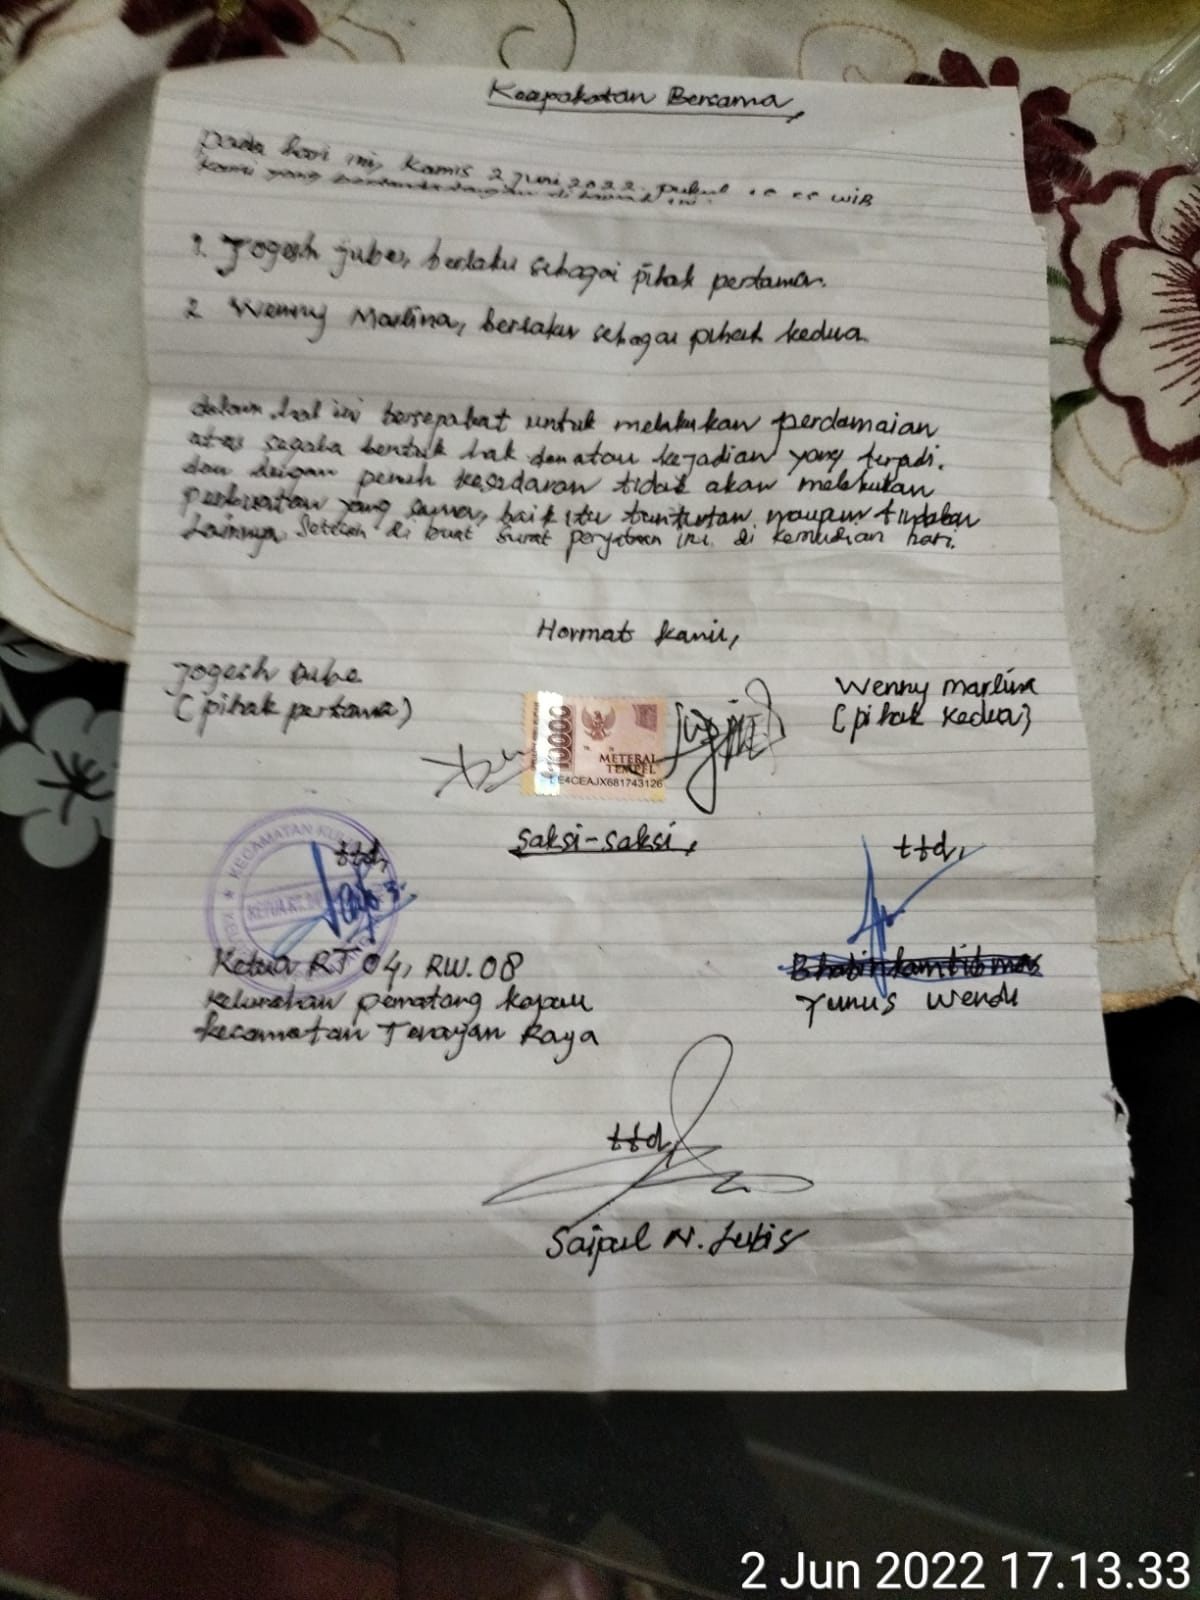 Kesepakatan Bersama,
Pada hari ini, Kamis 2 Juni 2022 pukul WIB
kami yang bertandatangan di bawah ini.
1. Jogesh Jube, berlaku sebagai pihak pertama.
2 Wenny Marlina, berlaku sebagai pihak kedua.
dalam hal ini bersepakat untuk melakukan perdamaian
atas segala bentuk hak dan atau kejadian yang terjadi.
dan dengan penuh kesadaran tidak akan melakukan
perbuatan yang sama, baik itu tuntutan maupun tindakan
Lainnya setelah di buat surat ini di kemudian hari.
Hormat kami,
Jogesh
(pihak pertama)
Wenny Marlina
(pihak kedua)
10000
METERAI
TEMPEL
E4CEAJX681743126
Saksi-saksi,
KECAMATAN
KETUA RT
ttd,
Ketua RT 04, RW. 08
Kelurahan pematang kapau
Kecamatan Tenayan Raya
ttd,
Bhabinkamtibmas
Yunus Wendi
ttd
Saipul N. Lubis
2 Jun 2022 17.13.33